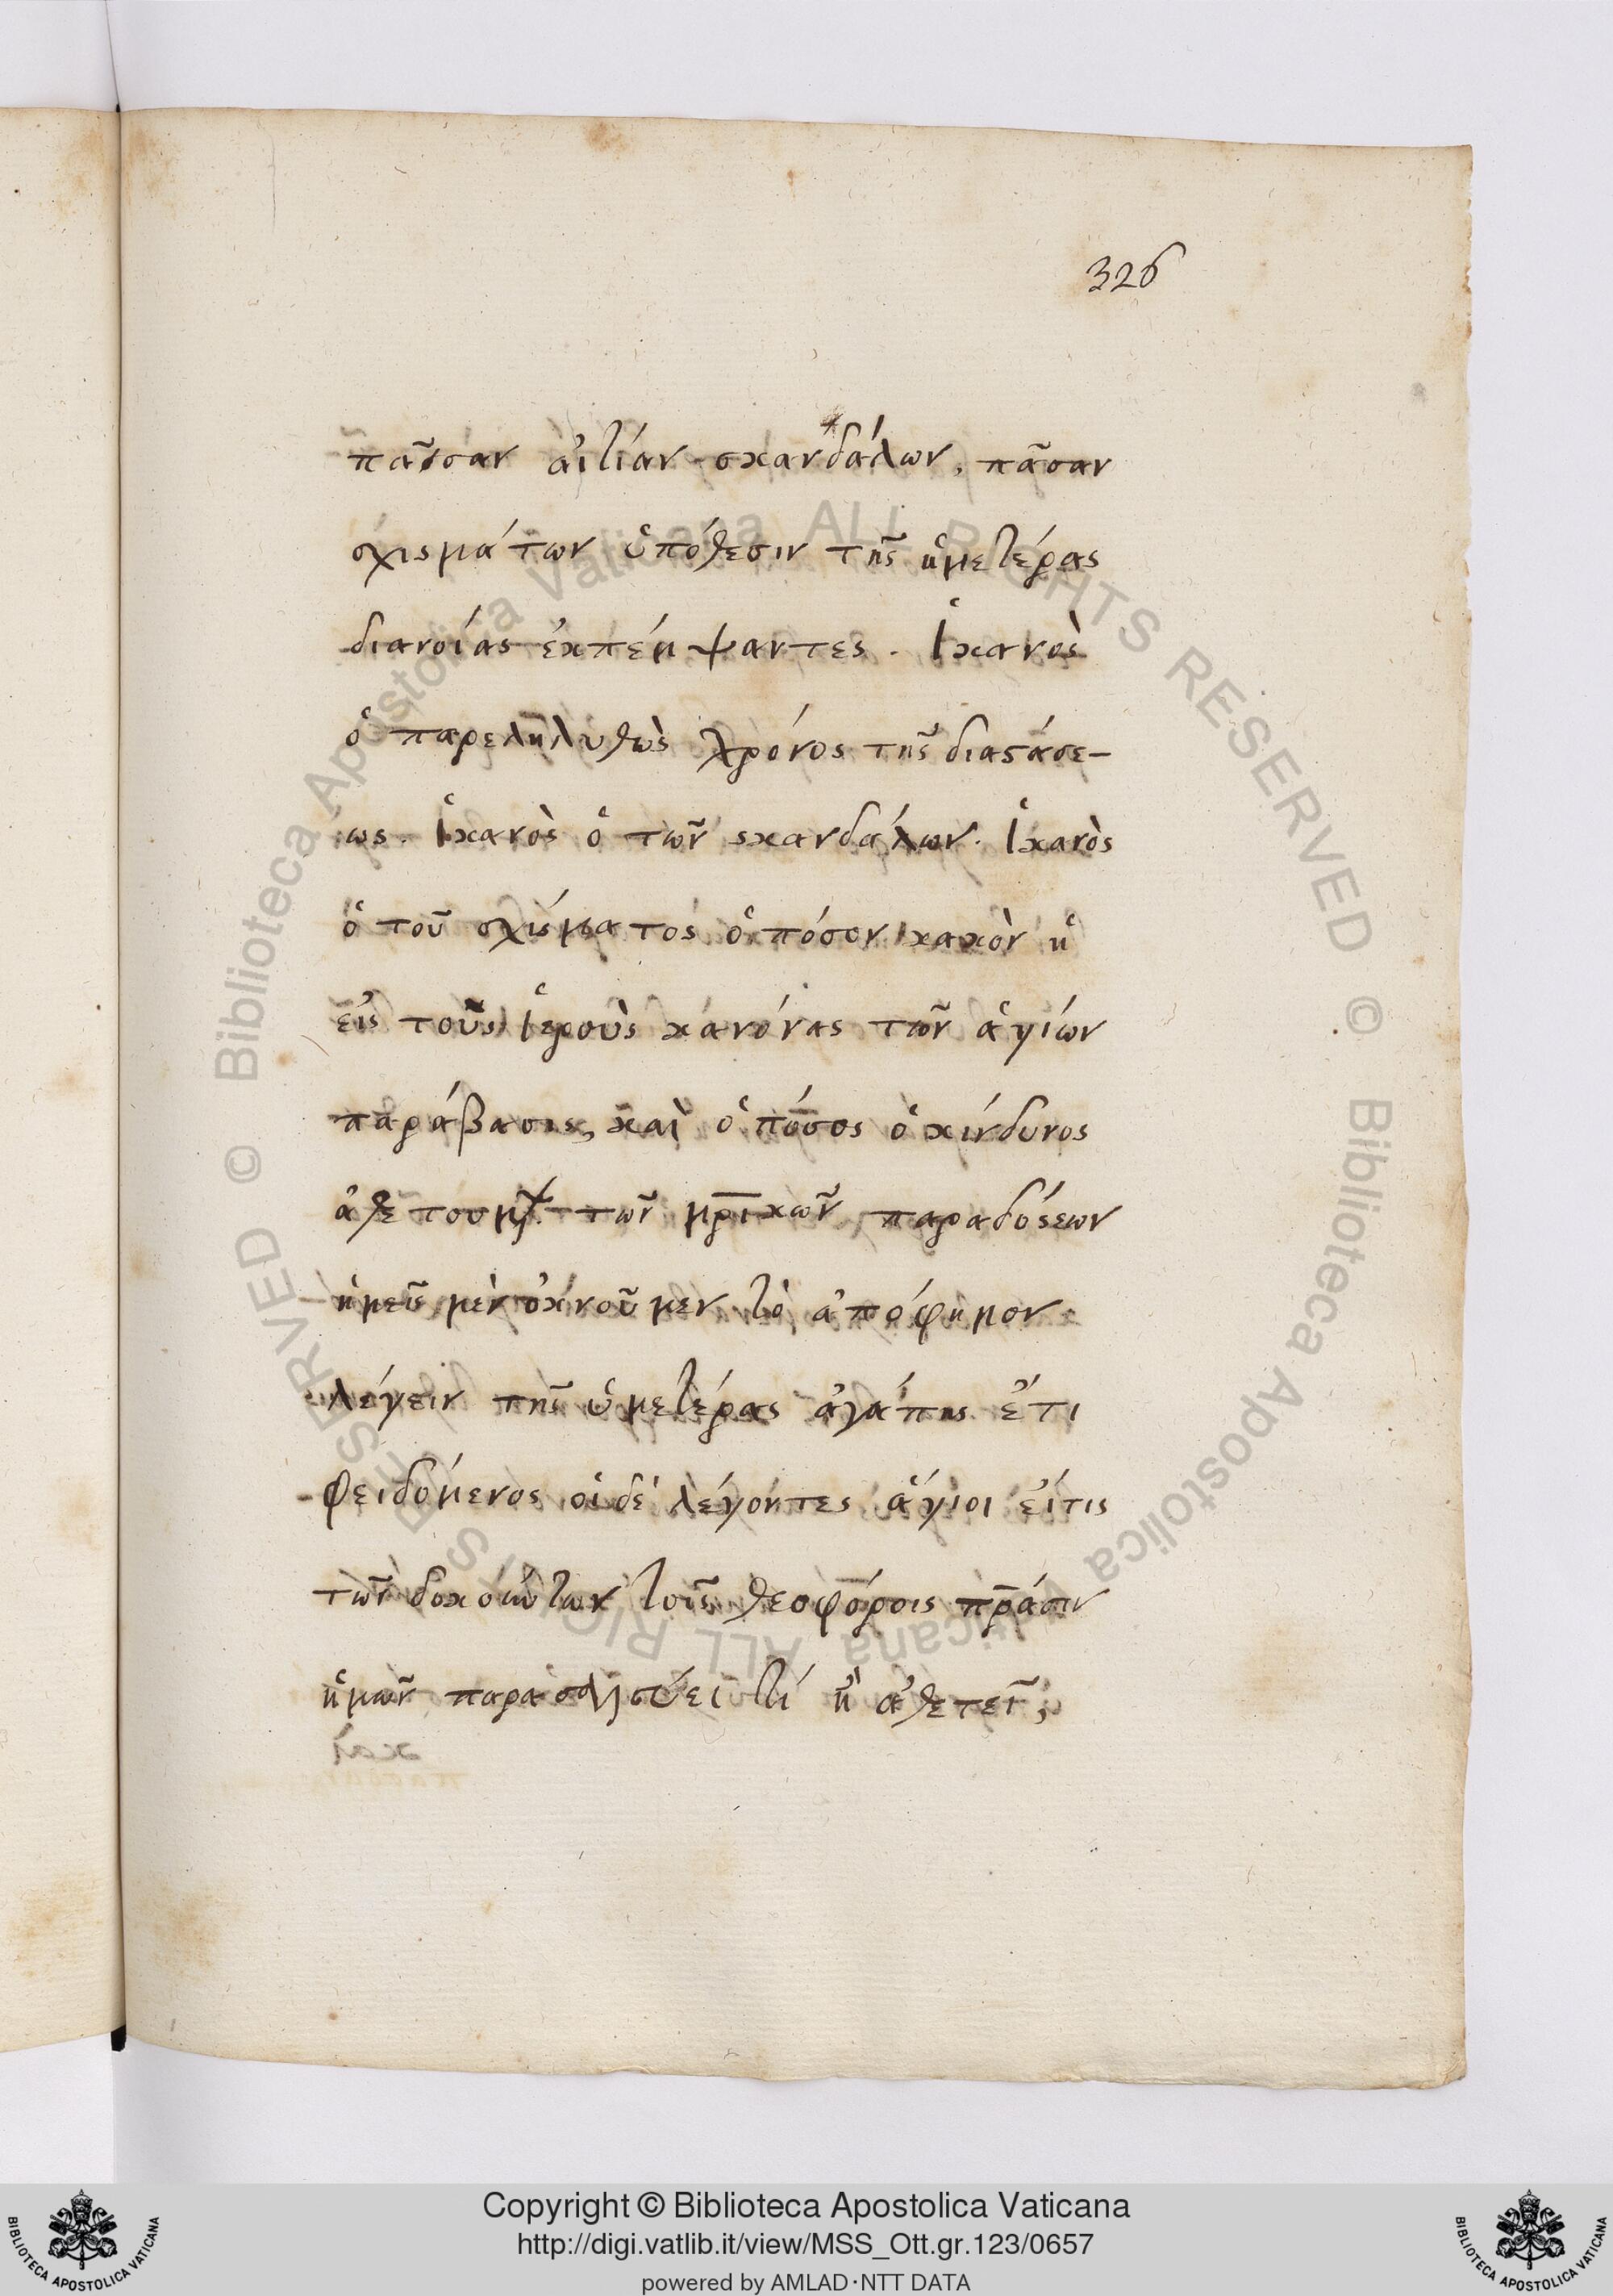 326
πᾶσαν αἰτίαν σκανδάλων, πᾶσαν
σχισμάτων ὑπόθεσιν τῆς ἡμετέρας
διανοίας ἐκπέμψαντες. Ἱκανὸς
ὁ παρεληλυθὼς χρόνος τῆς διαστάσε-
ως. Ἱκανὸς ὁ τῶν σκανδάλων. Ἱκανὸς
ὁ τοῦ σχίσματος ὁπόσον κακὸν ἡ
εἰς τοὺς ἱεροὺς κανόνας τῶν ἁγίων
παράβασις, καὶ ὁπόσος ὁ κίνδυνος
τῶν πρικῶν παραδόσεων
ἡμεῖς μὲν ὀκνοῦμεν τὸ ἀπόφημον
λέγειν τῆς ὑμετέρας ἀγάπης ἔτι
φειδόμενος οἱ δὲ λέγοντες ἅγιοι εἴτις
τῶν δοκούντων τοῖς θεοφόροις πράσιν
ἡμῶν παρασαλεύει τί ἢ ἀθετεῖ;
Copyright © Biblioteca Apostolica Vaticana
http://digi.vatlib.it/view/MSS_Ott.gr.123/0657
powered by AMLAD·NTT DATA
BIBLIOTECA APOSTOLICA VATICANA
BIBLIOTECA APOSTOLICA VATICANA
© Biblioteca Apostolica Vaticana ALL RIGHTS RESERVED
© Biblioteca Apostolica Vaticana ALL RIGHTS RESERVED